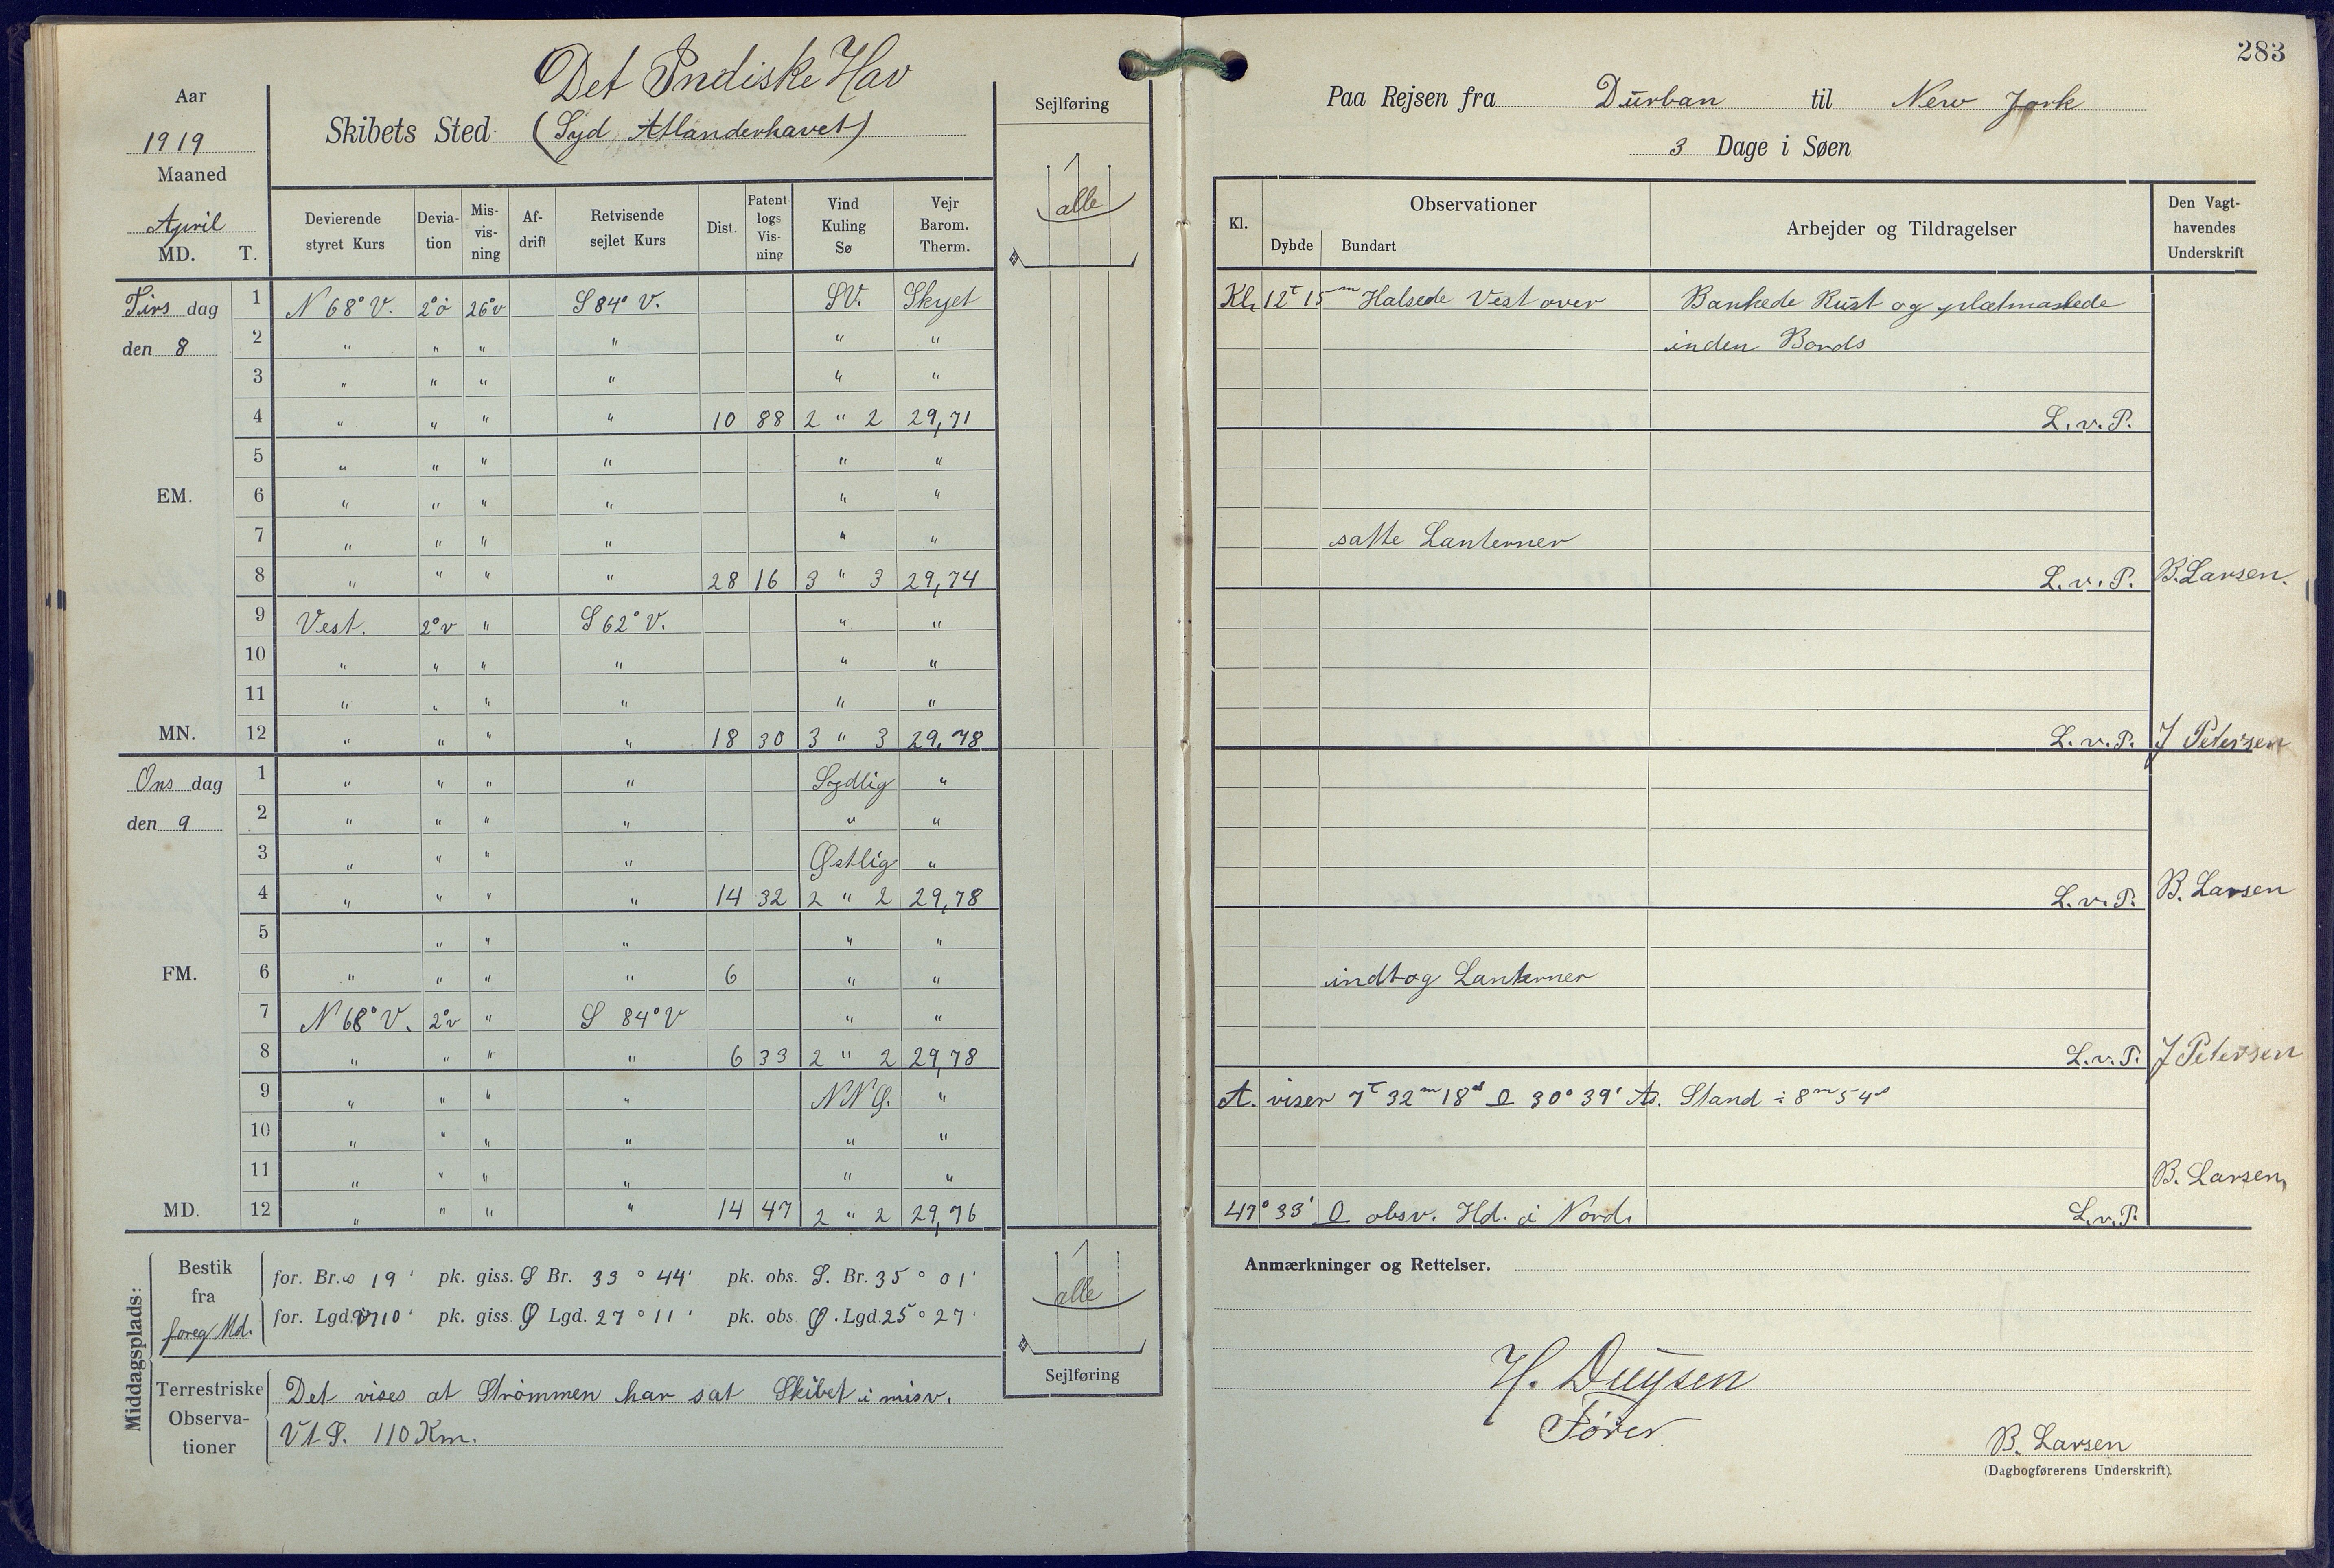 Det Indiske Hav
Aar
1919
Maaned
April
MD. T.
Skibets Sted (Syd Atlanderhavet)
Sejlføring
alle
Devierende styret Kurs | Devia-tion | Mis-vis-ning | Af-drift | Retvisende sejlet Kurs | Dist. | Patent-logs Vis-ning | Vind Kuling Sø | Vejr Barom. Therm.
Tirs dag 1 N 68° V. 2° ö 26° v S 84° V. SV. Skyet
den 8 2 " " " " " "
3 " " " " " "
4 " " " " 10 88 2 " 2 29,71
5 " " " " " "
EM. 6 " " " " " "
7 " " " " " "
8 " " " " 28 16 3 " 3 29,74
9 Vest. 2° v " S 62° V. " "
10 " " " " " "
11 " " " " " "
MN. 12 " " " " 18 30 3 " 3 29,78
Ons dag 1 " " " " Sydlig "
den 9 2 " " " " " "
3 " " " " Østlig "
4 " " " " 14 32 2 " 2 29,78
5 " " " " "
FM. 6 " " " " 6 " "
7 N 68° V. 2° v " S 84° V " "
8 " " " " 6 33 2 " 2 29,78
9 " " " " NNØ. "
10 " " " " " "
11 " " " " " "
MD. 12 " " " " 14 47 2 " 2 29,76
Middagsplads:
Bestik fra foreg Md.
for. Br. 19 ' pk. giss. S Br. 33 ° 44' pk. obs. S. Br. 35 ° 01 '
for. Lgd. 10 ' pk. giss. Ø Lgd. 27 ° 11 ' pk. obs. Ø. Lgd. 25 ° 27 '
alle
Sejlføring
Terrestriske Observa-tioner
Det vises at Strömmen har sat Skibet i misv.
V t S. 110 Km.
283
Paa Rejsen fra Durban til New Jork
3 Dage i Søen
Kl. | Observationer | Dybde | Bundart | Arbejder og Tildragelser | Den Vagt-havendes Underskrift
Kl. 12 t 15 m Halsede Vest over Bankede Rust og plætmaslede
inden Bords
L.v.P.
satte Lanterner
L.v.P. B. Larsen.
L.v.P. J Petersen
L.v.P. B. Larsen
indtog Lanterner
L.v.P. J Petersen
A. viser 7 t 32 m 18 s 30° 39' As. Stand ÷ 8 m 54 s
B. Larsen
47° 33' obsv. Hd. i Nord. L.v.P.
Anmærkninger og Rettelser.
H. Duysen
Fører
B. Larsen
(Dagbogførerens Underskrift).